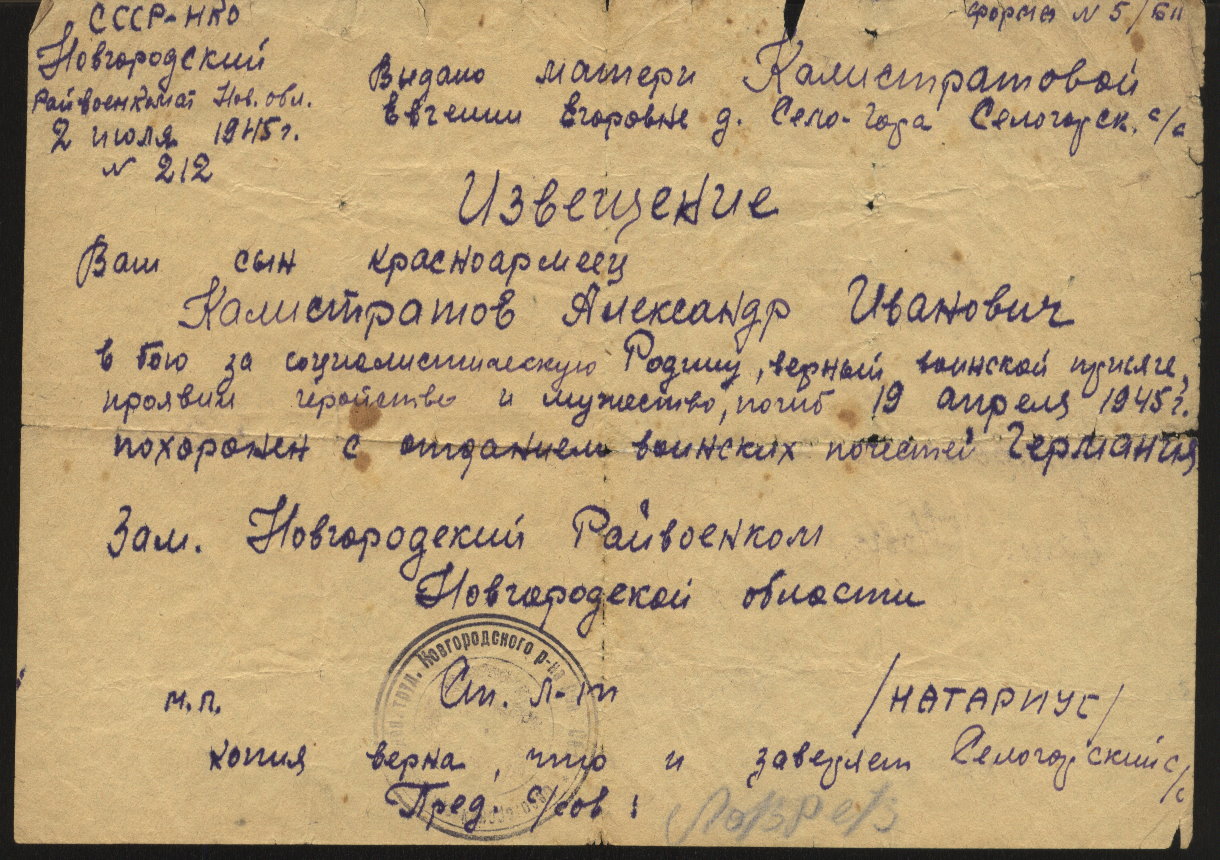 СССР-НКО
Новгородский
Райвоенкомат Нов. обл.
2 июля 1945 г.
N 212
форма N 5/БП
Выдано матери Калистратовой
Евгении Егоровне д. Село-Гора Селогорск. с/с
Извещение
Ваш сын красноармеец
Калистратов Александр Иванович
в бою за социалистическую Родину, верный воинской присяге,
проявив геройство и мужество, погиб 19 апреля 1945 г.
похоронен с отданием воинских почестей Германия
Зам. Новгородский Райвоенком
Новгородской области
Новгородского р-на
м.п. Ст. л-т /НАТАРИУС/
копия верна, что и заверяет Селогорский с/с
Пред. с/сов: